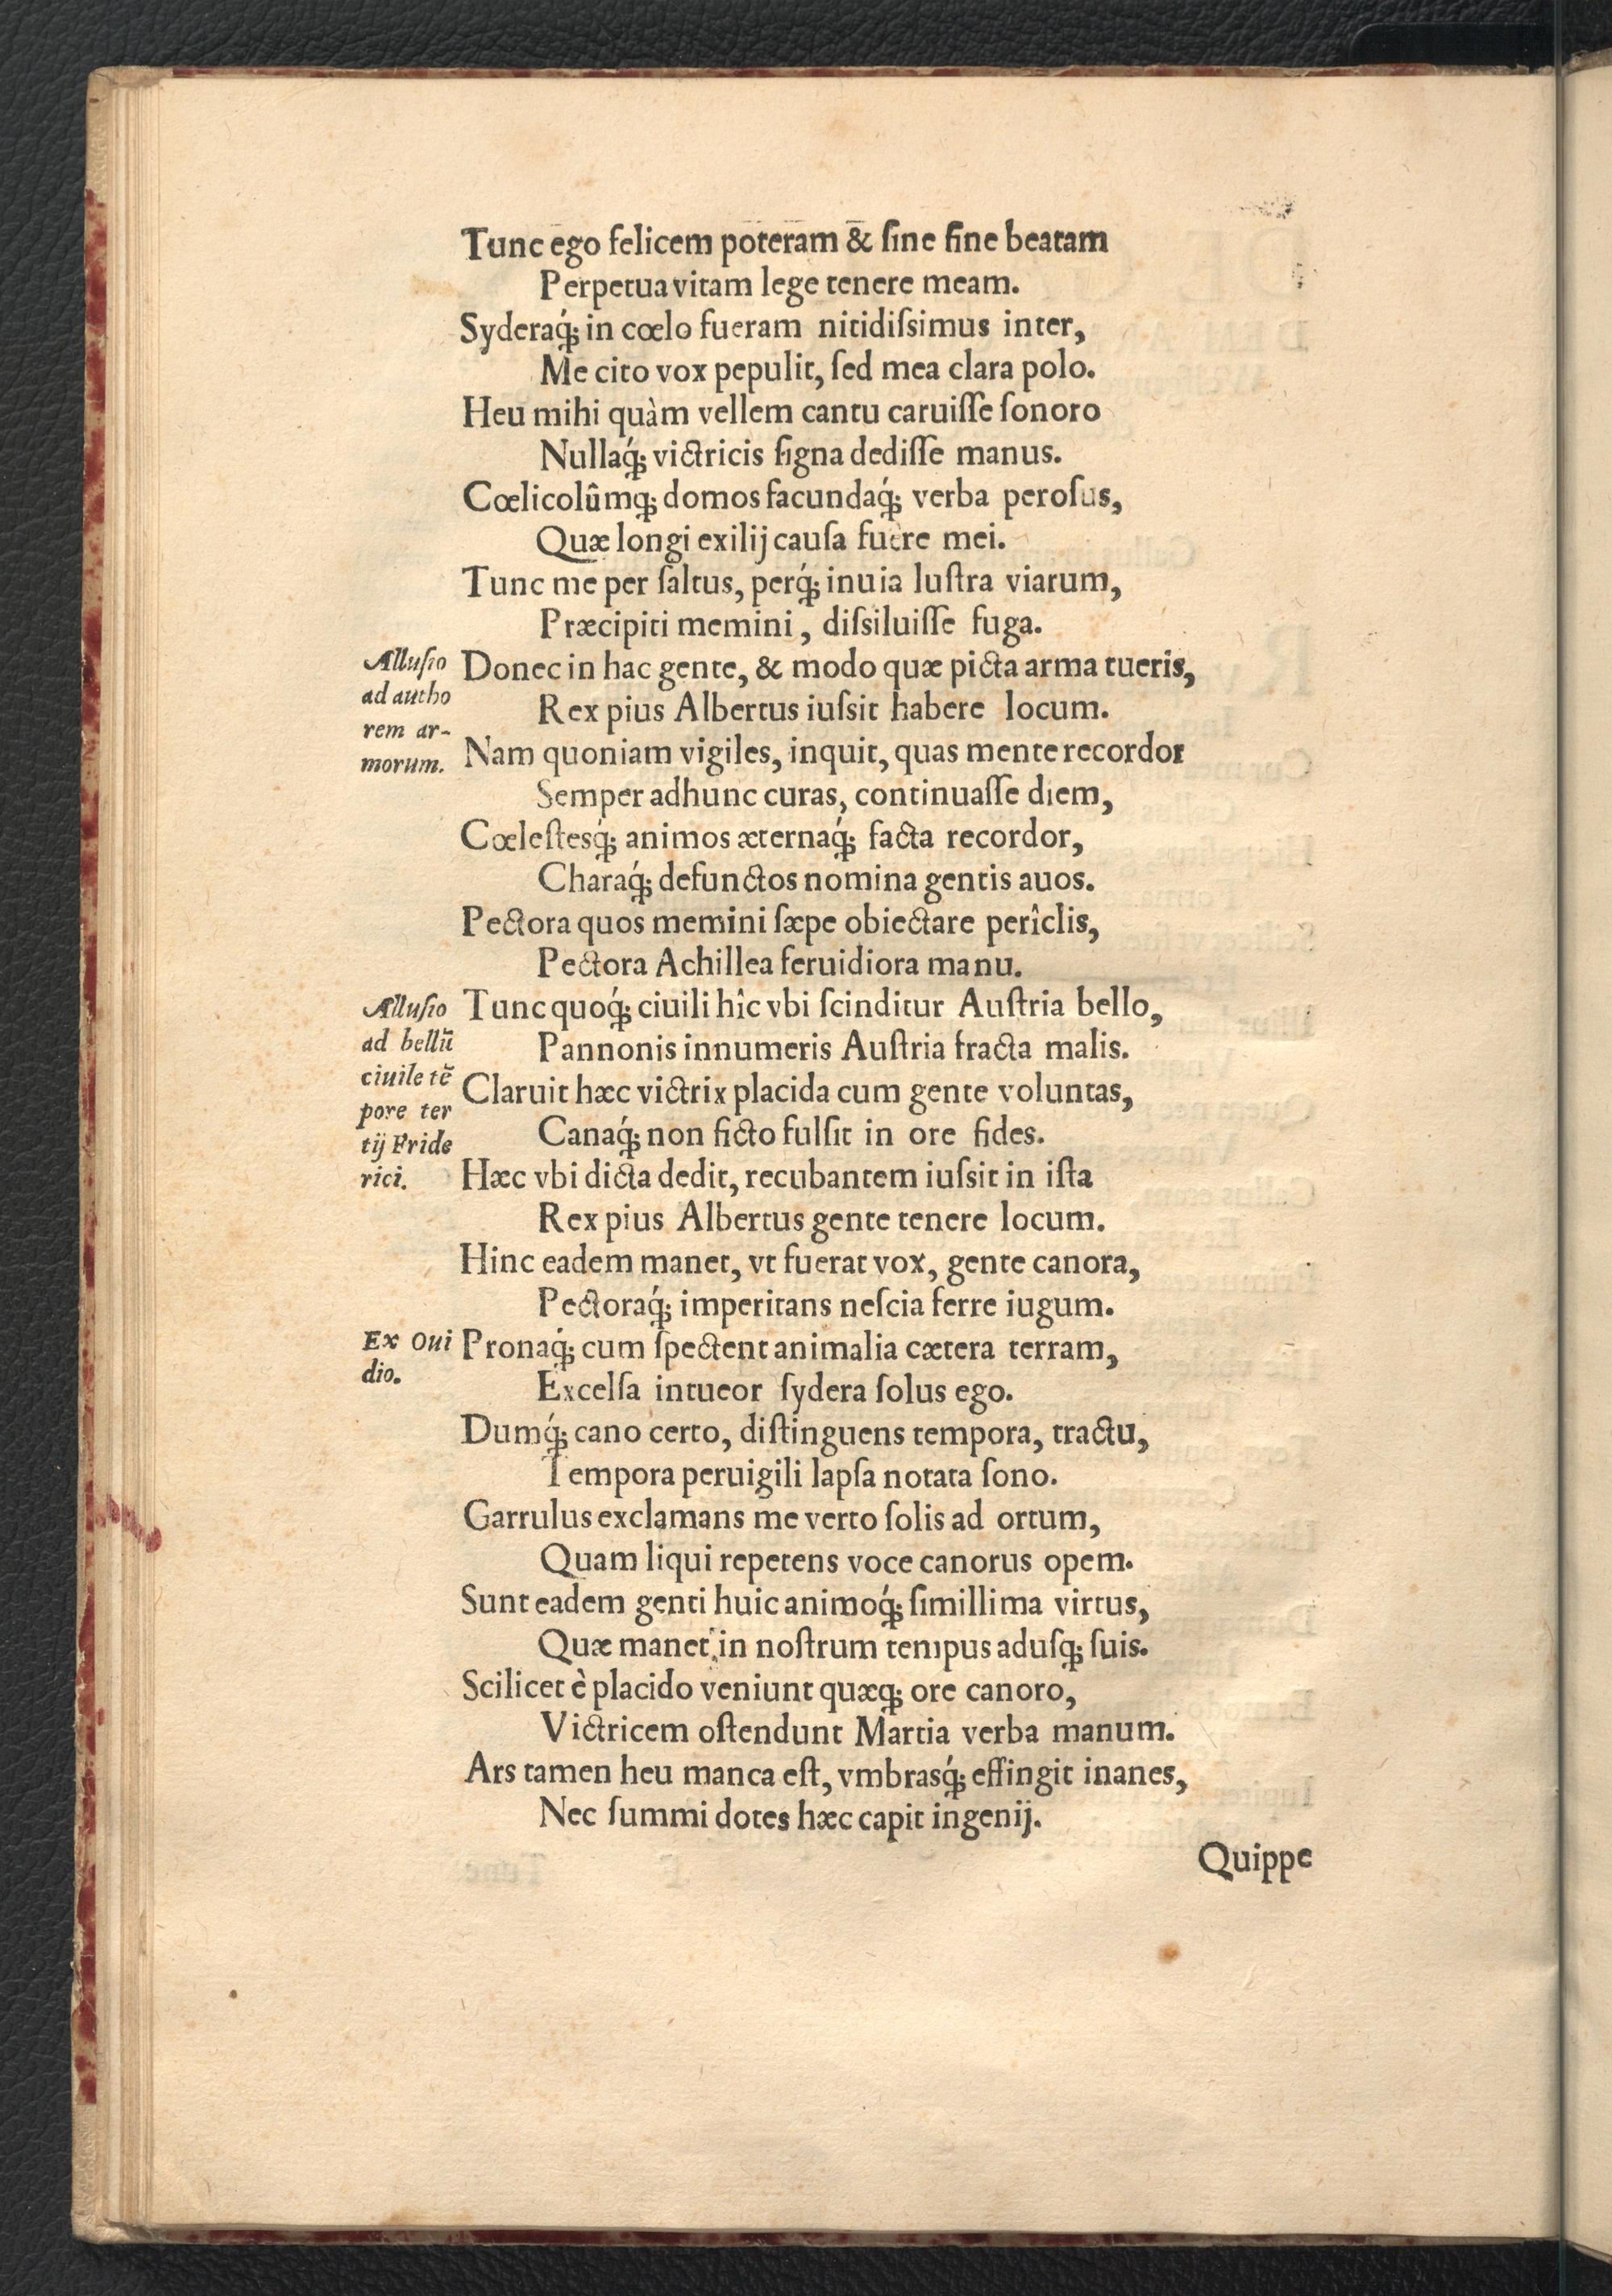 Tunc ego felicem poteram & ſine fine beatam
Perpetua vitam lege tenere meam.
Syderaq́; in cœlo fueram nitidiſsimus inter,
Me cito vox pepulit, ſed mea clara polo.
Heu mihi quàm vellem cantu caruiſſe ſonoro
Nullaq́; victricis ſigna dediſſe manus.
Cœlicolûmq; domos facundaq́; verba peroſus,
Quæ longi exilij cauſa fuere mei.
Tunc me per ſaltus, perq́; inuia luſtra viarum,
Præcipiti memini, diſsiluiſſe fuga.
Alluſio
ad autho
rem ar-
morum.
Donec in hac gente, & modo quæ picta arma tueris,
Rex pius Albertus iuſsit habere locum.
Nam quoniam vigiles, inquit, quas mente recordor
Semper adhunc curas, continuaſſe diem,
Cœleſtesq́; animos æternaq́; facta recordor,
Charaq́; defunctos nomina gentis auos.
Pectora quos memini ſæpe obiectare perîclis,
Pectora Achillea feruidiora manu.
Alluſio
ad bellũ
ciuile tẽ
pore ter
tij Fride
rici.
Tunc quoq́; ciuili hîc vbi ſcinditur Auſtria bello,
Pannonis innumeris Auſtria fracta malis.
Claruit hæc victrix placida cum gente voluntas,
Canaq́; non ficto fulſit in ore fides.
Hæc vbi dicta dedit, recubantem iuſsit in iſta
Rex pius Albertus gente tenere locum.
Hinc eadem manet, vt fuerat vox, gente canora,
Pectoraq́; imperitans neſcia ferre iugum.
Ex Oui
dio.
Pronaq́; cum ſpectent animalia cætera terram,
Excelſa intueor ſydera ſolus ego.
Dumq́; cano certo, diſtinguens tempora, tractu,
Tempora peruigili lapſa notata ſono.
Garrulus exclamans me verto ſolis ad ortum,
Quam liqui repetens voce canorus opem.
Sunt eadem genti huic animoq́; ſimillima virtus,
Quæ manet in noſtrum tempus aduſq; ſuis.
Scilicet è placido veniunt quæq; ore canoro,
Victricem oſtendunt Martia verba manum.
Ars tamen heu manca eſt, vmbrasq́; effingit inanes,
Nec ſummi dotes hæc capit ingenij.
Quippe